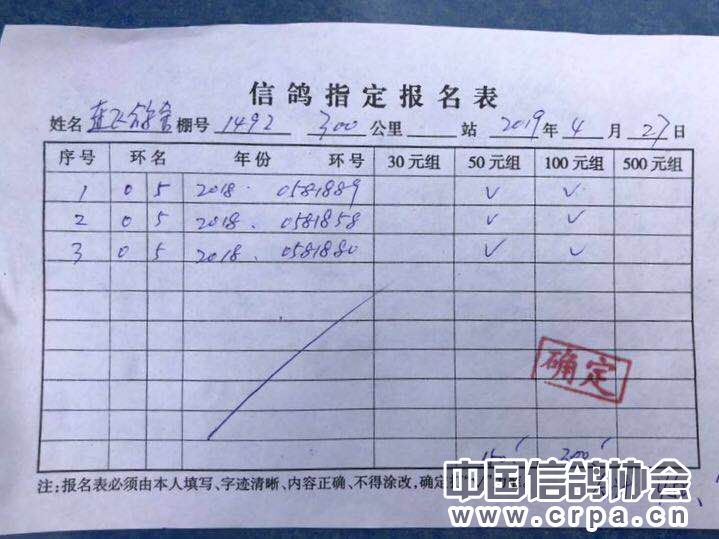 信鸽指定报名表
姓名 棚号 1492 300 公里 站 2019年 4 月 27日
序号 环名 年份 环号 30元组 50元组 100元组 500元组
1 0 5 2018. 0581889 √ √
2 0 5 2018. 0581858 √ √
3 0 5 2018. 0581880 √ √
确定
300
注:报名表必须由本人填写、字迹清晰、内容正确、不得涂改,确定
中国信鸽协会
www.crpa.cn